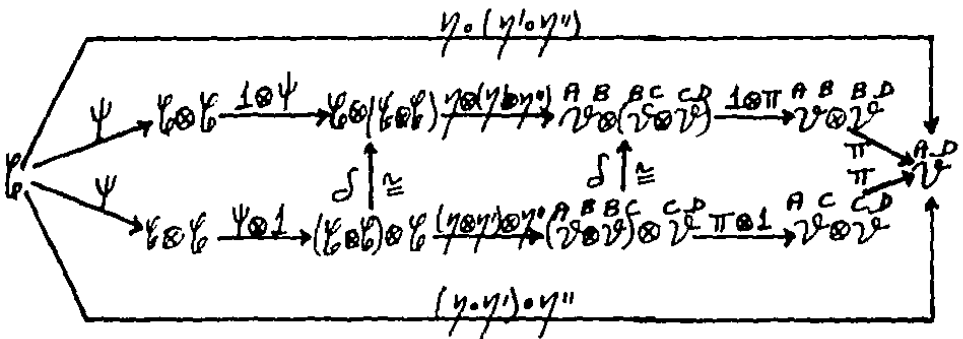 η∘(η'∘η'')
ψ 𝒞⊗𝒞 1⊗ψ 𝒞⊗(𝒞⊗𝒞) η⊗(η'⊗η'') A B 𝒱⊗( B C 𝒱⊗ C D 𝒱) 1⊗π A B 𝒱⊗ B D 𝒱 π
𝒞 δ ≅ δ ≅ A D 𝒱
ψ 𝒞⊗𝒞 ψ⊗1 (𝒞⊗𝒞)⊗𝒞 (η⊗η')⊗η'' ( A B 𝒱⊗ B C 𝒱)⊗ C D 𝒱 π⊗1 A C 𝒱⊗ C D 𝒱 π
(η∘η')∘η''